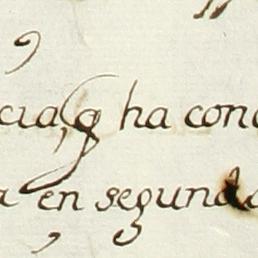 cia, q ha con
en segunda